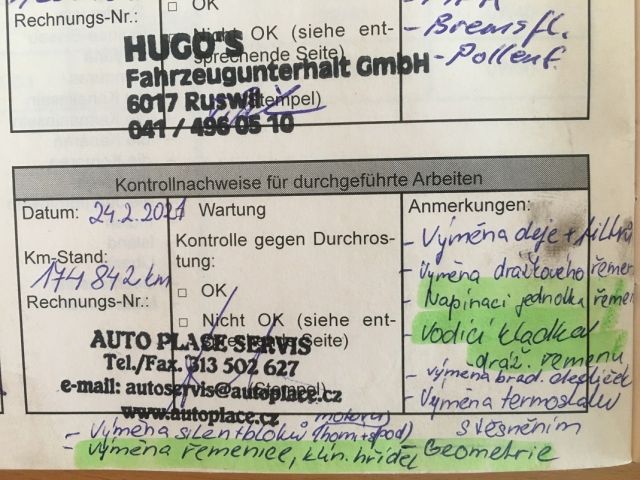 Rechnungs-Nr.:
□ OK
□ Nicht OK (siehe ent-
sprechende Seite)
(Stempel)
HUGO'S
Fahrzeugunterhalt GmbH
6017 Ruswil
041 / 496 05 10
- Bremsfl.
- Pollenf.
Kontrollnachweise für durchgeführte Arbeiten
Datum: 24.2.2021
Km-Stand:
174 842 km
Rechnungs-Nr.:
Wartung
Kontrolle gegen Durchros-
tung:
□ OK
□ Nicht OK (siehe ent-
sprechende Seite)
(Stempel)
AUTO PLACE SERVIS
Tel./Fax. 313 502 627
e-mail: autoservis@autoplace.cz
www.autoplace.cz
Anmerkungen:
- Výměna oleje + filtrů
- Výměna drážkového řemen
- Napínací jednotka řeme
- vodící kladka
dráž. řemenu
- výměna brzd. destiček
- Výměna termostatu
s těsněním
- Výměna silentbloků motoru (horn. + spod)
- výměna řemenice, klik. hřídel Geometrie